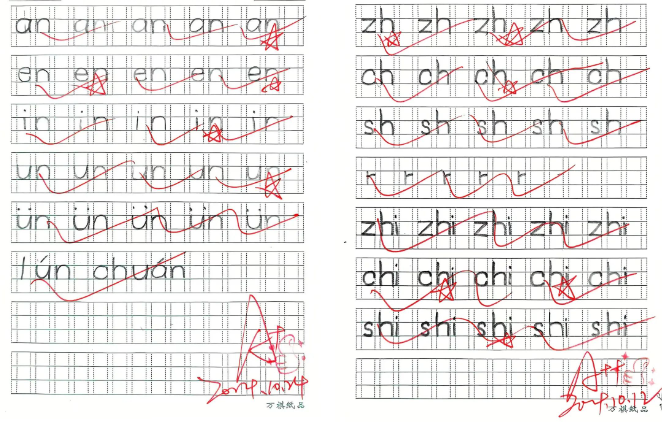 an an an an an
en en en en en
in in in in in
un un un un un
ün ün ün ün ün
lún chuán
2024.10.24
万祺纸品
zh zh zh zh zh
ch ch ch ch ch
sh sh sh sh sh
r r r r r
zhi zhi zhi zhi zhi
chi chi chi chi chi
shi shi shi shi shi
A++
2024.10.12
万祺纸品